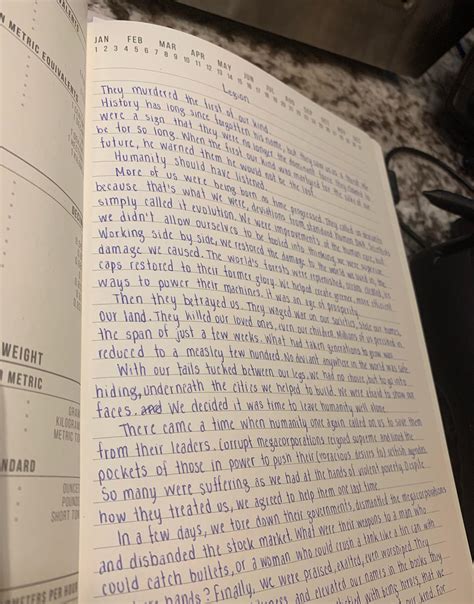 JAN FEB MAR APR MAY JUN
1 2 3 4 5 6 7 8 9 10 11 12 13 14 15 16 17
Legion
They murdered the first of our kind.
History has long since forgotten his name, but they saw us as a threat. We
were a sign that they were no longer the dominant
be for so long. When the first of our kind was martyred for the sake of the
future, he warned them he would not be the last.
Humanity should have listened.
More of us were being born as time progressed. They called us deviants
because that's what we were, deviations from standard human DNA. Scientists
simply called it evolution. We were improvements of the human race, but
we didn't allow ourselves to be fooled into thinking we were superior.
Working side by side, we restored the damage to the world we lived in, the
damage we caused. The world's forests were replenished, oceans cleaned, ice
caps restored to their former glory. We helped create greener, more efficient
ways to power their machines. It was an age of prosperity.
Then they betrayed us. They waged war on our societies, stole our homes,
our land. They killed our loved ones, even our children. Millions of us perished in
the span of just a few weeks. What had taken generations to grow was
reduced to a measley few hundred. No deviant anywhere in the world was safe.
With our tails tucked between our legs, we had no choice but to go into
hiding, underneath the cities we helped to build. We were afraid to show our
faces. and We decided it was time to leave humanity well alone.
There came a time when humanity once again called on us to save them
from their leaders. Corrupt megacorporations reigned supreme and lined the
pockets of those in power to push their voracious desires and selfish agendas.
So many were suffering as we had at the hands of violent poverty. Despite
how they treated us, we agreed to help them one last time.
In a few days, we tore down their governments, dismantled the megacorporations
and disbanded the stock market. What were their weapons to a man who
could catch bullets, or a woman who could crush a tank like a tin can with
hands? Finally, we were praised, exalted, even worshiped. They
and elevated our names in the books they
with saving hers, that we
our kind. For
METRIC EQUIVALENTS
WEIGHT
METRIC
GRAM
KILOGRAM
METRIC TON
NDARD
OUNCES
POUNDS
SHORT TON
METERS PER HOUR